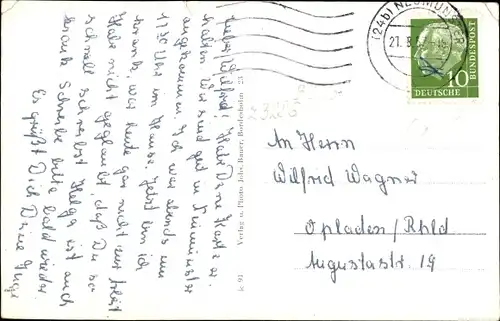 Lieber Wilfried! Habe Deine Karte er-
halten. Wir sind gut in Neumünster
angekommen. Ich war abends um
17³⁰ Uhr im Hause. Jetzt bin ich
krank, war heute gar nicht zur Arbeit.
Habe nicht geglaubt, daß Du so
schnell schreibst. Helga ist auch
krank. Schreibe bitte bald wieder.
Es grüßt Dich Deine Inge
k 91 Verlag u. Photo Johs. Bauer, Bordesholm 23
(24b) NEUMÜNSTER
21. 3.
10
DEUTSCHE
BUNDESPOST
An Herrn
Wilfried Wagner
Opladen/Rhld
Augustastr. 19